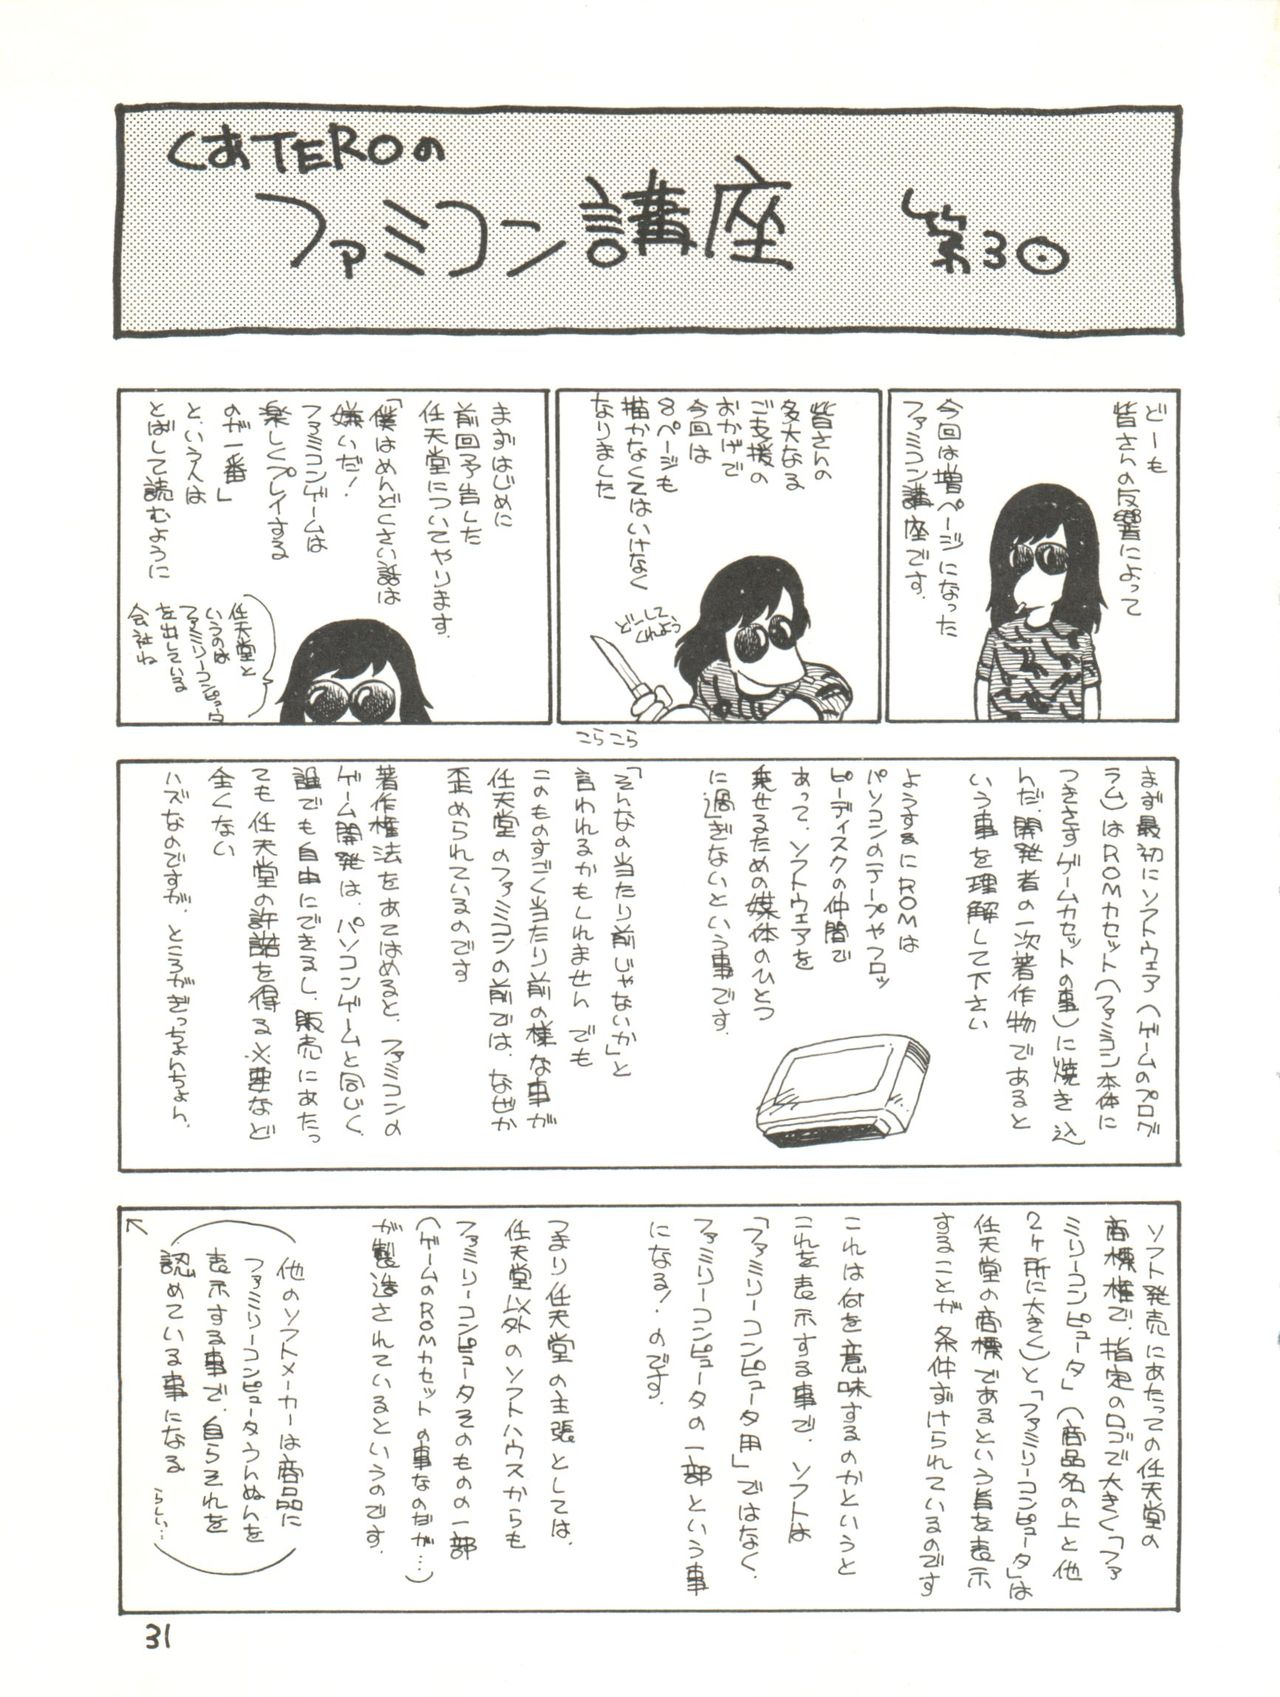 くあTEROの
ファミコン講座 第3⊙
どーも
皆さんの反響によって
今回は増ページになった
ファミコン講座です.
皆さんの
多大なる
ご支援の
おかげで
今回は
8ページも
描かなくてはいけなく
なりました
どーして
くれよう
こらこら
まずはじめに
前回予告した
任天堂についてやります.
「僕はめんどくさい話は
嫌いだ!
ファミコンゲームは
楽しくプレイする
のが一番」
と、いう人は
とばして読むように
任天堂と
いうのは
ファミリーコンピュータ
を出している
会社ね
まず最初にソフトウェア(ゲームのプログ
ラム)はROMカセット(ファミコン本体に
つきさすゲームカセットの事)に焼き込
んだ、開発者の一次著作物であると
いう事を理解して下さい
ようするにROMは
パソコンのテープやフロッ
ピーディスクの仲間で
あって、ソフトウェアを
乗せるための媒体のひとつ
に過ぎないという事です.
「そんなの当たり前じゃないか」と
言われるかもしれません でも
このものすごく当たり前の様な事が
任天堂のファミコンの前では、なぜか
歪められているのです
著作権法をあてはめると、ファミコンの
ゲーム開発は、パソコンゲームと同じく、
誰でも自由にできるし、販売にあたっ
ても任天堂の許諾を得る必要など
全くない
ハズなのですが、ところがぎっちょんちょん、
ソフト発売にあたっての任天堂の
商標権で、指定のロゴで大きく「ファ
ミリーコンピュータ」(商品名の上と他
2ヶ所に大きく)と「ファミリーコンピュータ」は
任天堂の商標であるという旨を表示
することが条件ずけられているのです
これは何を意味するのかというと
これを表示する事で、ソフトは
「ファミリーコンピュータ用」ではなく、
ファミリーコンピュータの一部という事
になる!.のです.
つまり任天堂の主張としては、
任天堂以外のソフトハウスからも
ファミリーコンピュータそのものの一部
(ゲームのROMカセットの事なのだが…)
が製造されているというのです.
他のソフトメーカーは商品に
ファミリーコンピュータうんぬんを
表示する事で、自らそれを
認めている事になる
らしい…
31